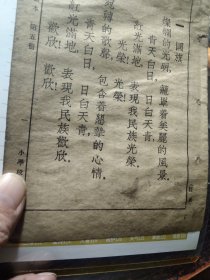 一 國旗
燦爛的光輝，籠罩着美麗的風景，
青天白日，日白天青，
紅光滿地，表現我民族光榮，
光榮！光榮！
的歌聲，包含着懇摯的心情，
青天白日，日白天青，
紅光滿地，表現我民族歡欣，
歡欣！歡欣！
本 第五冊
小學校